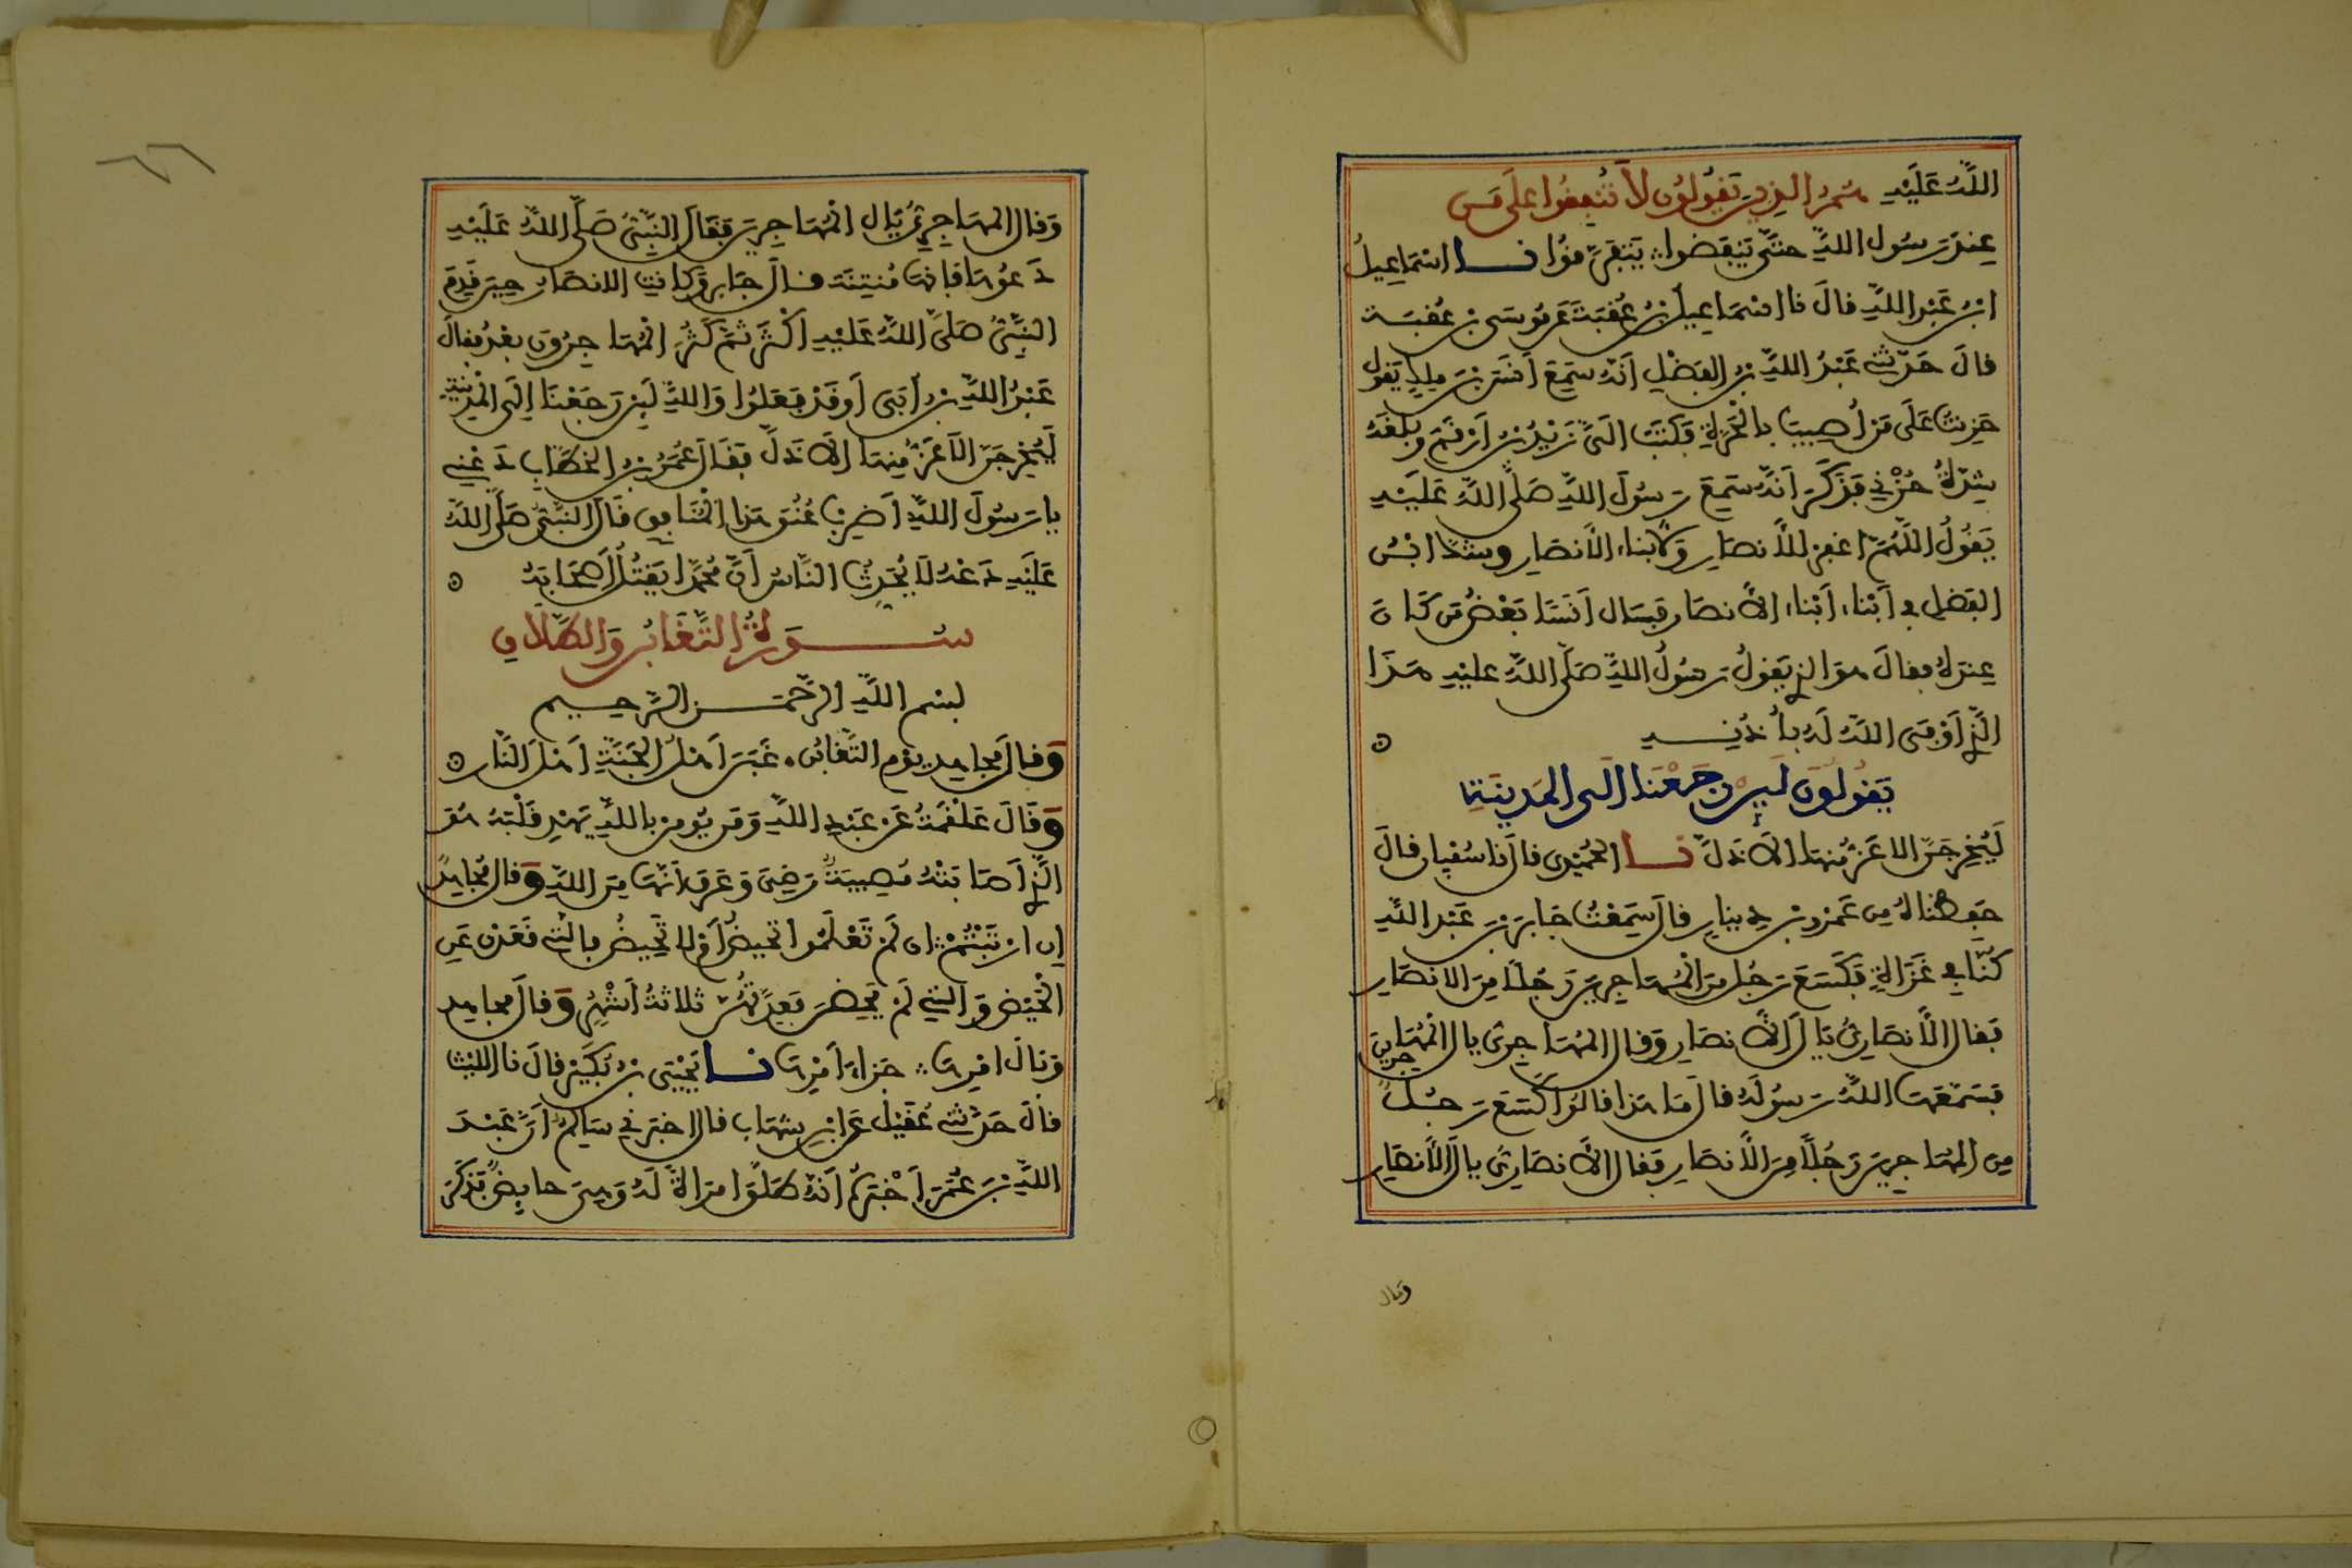 اللَّهُ عَلَيْهِ هُمُ الذِينَ يَقُولُونَ لاَ تُنْفِقُوا عَلَى مَن
عِندَ رَسُولِ اللَّهِ حَتَّى يَنفَضوا يَتَفَرَّقوُا نا اسْمَاعِيلُ
ابْنُ عَبْدِ اللَّهِ قالَ نا اسْمَاعِيلُ بْنُ عُقبَةَ عَن مُوسَى بْنِ عُقبَة
قالَ حَدّثني عَبْدُ اللَّهِ بْنُ الفَضْلِ أنّهُ سَمِعَ أنَسَ بْنَ ملِكٍ يَقول
حَزِنتُ عَلَى مَنْ أُصِيبَ بالْحَرَّةِ فَكَتَبَ الَىَّ زَيْدُ بْنُ أَرْقَمَ وبَلَغَهُ
شِدّةُ حُزْنِي فَذَكَرَ أنَّهُ سَمِعَ رَسُولَ اللَّهِ صَلَّى اللَّهُ عَلَيْهِ
يَقُولُ اللَّهُمَّ اغفِرْ لِلْأَنصَارِ وَلأَبناءِ الأنصَارِ وشَكَّ ابْنُ
الفَضلِ في أبْناءِ أبْناءِ الأنصَارِ فَسَال أنَسًا بَعْضُ مَن كَانَ
عِندَهُ فقالَ هوَ الذِي يَقولُ رَسُولُ اللَّهِ صَلَّى اللَّهُ عليْهِ هَذَا
الَّذِي أوْفَى اللَّهُ لَهُ بِأُذُنِهِ
يَقُولُونَ لَئِن رَجَعْنَا الَى المَدِينَةِ
لَيُخْرِجَنَّ الاعَزُّ مِنهَا الأَذَلَّ نا الحُمَيْدِى قالَ نا سُفْيان قالَ
حَفِظْناهُ مِن عَمْرِو بْنِ دِينارٍ قالَ سَمِعْتُ جَابِرَ بْنَ عَبْدِ اللَّهِ
كُنَّا في غَزَاةٍ فَكَسَعَ رَجُلٌ مِنَ الْمُهَاجِرِينَ رَجُلًا مِنَ الانصَارِ
فَقالَ الأنصَارِىُّ يَالَ الأنصَارِ وَقالَ المُهَاجِرىُّ يالَ الْمُهَاجِرِينَ
فسَمَّعَهَا اللَّهُ رَسُولَهُ قالَ مَا هَذا قالوُا كَسَعَ رَجُلٌ
مِن المُهَاجِرِينَ رَجُلًا مِنَ الأنصَارِ فَقالَ الأنصَارِىُّ يالَ الأنصَارِ
وقال
وَقالَ المهَاجِرِىُّ يَال الْمُهَاجِرِينَ فَقَالَ النَّبِىُّ صَلَّى اللَّهُ عَلَيْهِ
دَعُوهَا فَإنهَا مُنتِنَة قالَ جَابِر وَكانَتِ الانصَار حِينَ قَدِمَ
النَّبِىُّ صَلَّى اللَّهُ عَلَيْهِ أكْثَرَ ثُمَّ كَثُرَ الْمُهَاجِرُونَ بعْدُ فقالَ
عَبْدُ اللَّهِ بْنُ أُبَى أوَقَدْ فَعَلُوا وَاللَّهِ لَئِن رَجَعْنَا إلَى الْمَدِينَةِ
لَيُخْرِجَنَّ الأعَزُّ مِنهَا الأَذَلَّ فقَالَ عُمَرُ بْنُ الخَطَّابِ دَعْنِي
يا رَسُولَ اللَّهِ أَضرِبْ عُنُقَ هَذا الْمُنَافِقِ قَالَ النَّبِىُّ صَلَّى اللَّهُ
عَلَيْهِ دَعْهُ لَا يُحَدِّثُ النَّاسُ أنَّ مُحَمَّدًا يَقْتُلُ أَصْحَابَهُ
سُورَةُ التَّغَابُنِ وَالطَّلَاقِ
بِسْمِ اللَّهِ الرَّحْمَنِ الرَّحِيمِ
وَقالَ مُجاهِد يَوْم التَّغَابُنِ غَبَنَ أَهْلُ الجَنَّةِ أَهْلَ النَّارِ
وَقَالَ عَلْقَمَةُ عَنْ عَبْدِ اللَّهِ وَمَن يُومِن بِاللَّهِ يَهْدِ قَلْبَهُ هُوَ
الَّذِي أصَابَتْهُ مُصِيبَةٌ رَضِىَ وَعَرَفَ أنَّهَا مِنَ اللَّهِ وَقالَ مُجَاهِدٌ
إِنِ ارْتَبْتُمْ ان لَمْ تَعْلَمُوا اتَحِيضُ أمْ لا تَحِيضُ فالّتِي قَعَدْنَ عَنِ
الْمَحِيْضِ وَالتِي لَمْ يَحِضْنَ بَعْدُ فَعِدَّتُهُنّ ثَلاثةُ أشْهُرٍ وَقالَ مجاهِد
وَبَالَ امْرِهَا جَزَاءَ أمْرِهَا نا يَحْيَى بْنُ بُكَيْرٍ قالَ نا اللَّيْثُ
قالَ حَدّثني عُقَيْل عَن ابْنِ شِهَاب قالَ اخبَرَنِي سَالِمٌ أَنَّ عَبْدَ
اللَّهِ بْنَ عُمَرَ أَخْبَرَهُ أنَّهُ طَلَّقَ امرَأةً لَهُ وَهِىَ حائِضٌ فَذَكَرَ